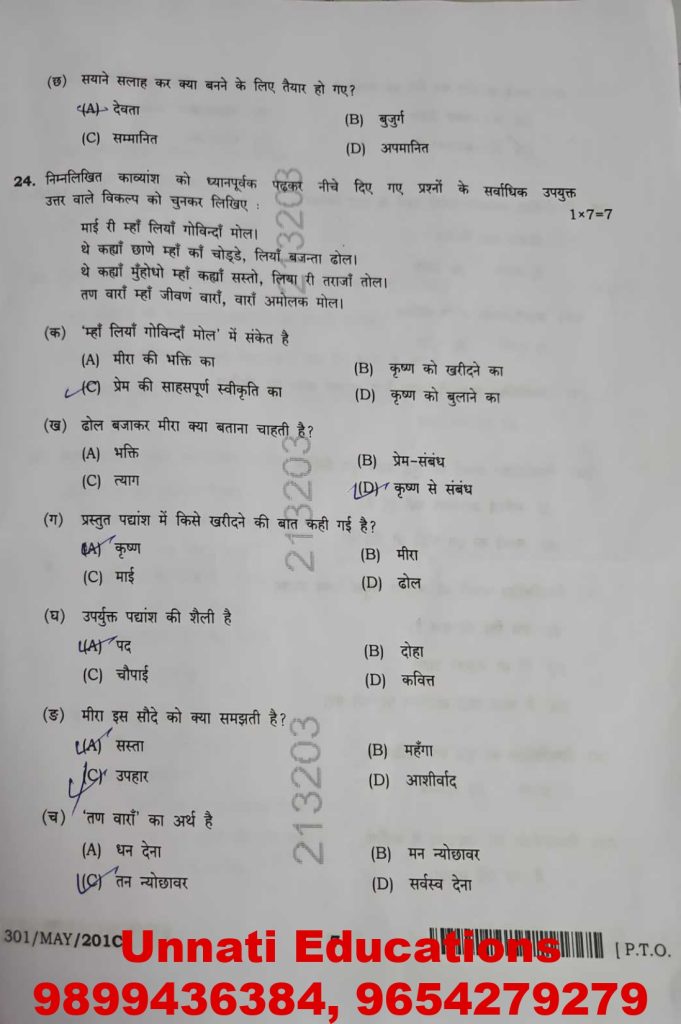 (छ) सयाने सलाह कर क्या बनने के लिए तैयार हो गए?
(A) देवता (B) बुजुर्ग
(C) सम्मानित (D) अपमानित
24. निम्नलिखित काव्यांश को ध्यानपूर्वक पढ़कर नीचे दिए गए प्रश्नों के सर्वाधिक उपयुक्त
उत्तर वाले विकल्प को चुनकर लिखिए : 1×7=7
माई री म्हाँ लियाँ गोविन्दाँ मोल।
थे कह्याँ छाणे म्हाँ काँ चोड्डे, लियाँ बजन्ता ढोल।
थे कह्याँ मुँहोधो म्हाँ कह्याँ सस्तो, लिया री तराजाँ तोल।
तण वाराँ म्हाँ जीवणं वाराँ, वाराँ अमोलक मोल।
(क) ‘म्हाँ लियाँ गोविन्दाँ मोल’ में संकेत है
(A) मीरा की भक्ति का (B) कृष्ण को खरीदने का
(C) प्रेम की साहसपूर्ण स्वीकृति का (D) कृष्ण को बुलाने का
(ख) ढोल बजाकर मीरा क्या बताना चाहती है?
(A) भक्ति (B) प्रेम-संबंध
(C) त्याग (D) कृष्ण से संबंध
(ग) प्रस्तुत पद्यांश में किसे खरीदने की बात कही गई है?
(A) कृष्ण (B) मीरा
(C) माई (D) ढोल
(घ) उपर्युक्त पद्यांश की शैली है
(A) पद (B) दोहा
(C) चौपाई (D) कवित्त
(ङ) मीरा इस सौदे को क्या समझती है?
(A) सस्ता (B) महँगा
(C) उपहार (D) आशीर्वाद
(च) ‘तण वाराँ’ का अर्थ है
(A) धन देना (B) मन न्योछावर
(C) तन न्योछावर (D) सर्वस्व देना
213203
213203
213203
301/MAY/201C [ P.T.O.
Unnati Educations
9899436384, 9654279279